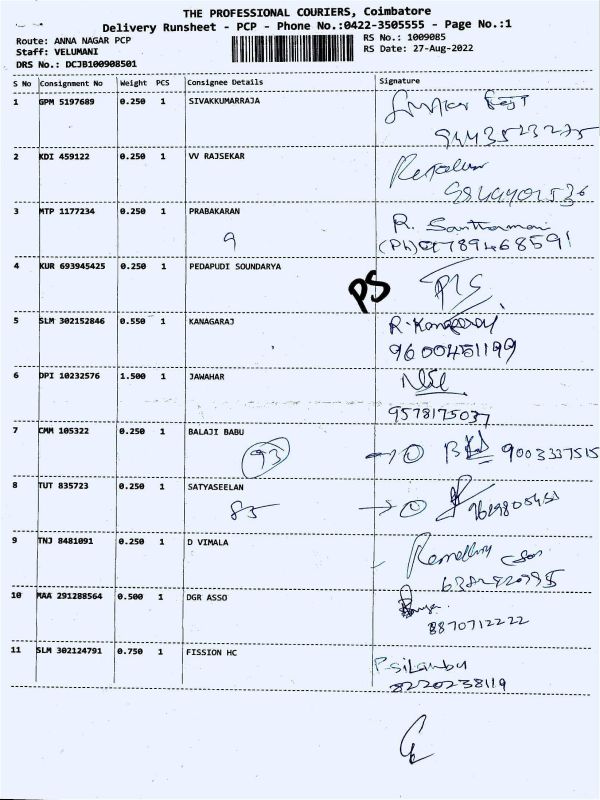 THE PROFESSIONAL COURIERS, Coimbatore
Delivery Runsheet - PCP - Phone No.:0422-3505555 - Page No.:1
Route: ANNA NAGAR PCP RS No.: 1009085
Staff: VELUMANI RS Date: 27-Aug-2022
DRS No.: DCJB100908501
S No Consignment No Weight PCS Consignee Details Signature
1 GPM 5197689 0.250 1 SIVAKKUMARRAJA
9443523275
2 KDI 459122 0.250 1 VV RAJSEKAR
3 MTP 1177234 0.250 1 PRABAKARAN R. Santhamani
9 (Ph) 9789468591
4 KUR 693945425 0.250 1 PEDAPUDI SOUNDARYA
PS
5 SLM 302152846 0.550 1 KANAGARAJ R.Kanagaraj
9600451199
6 DPI 10232576 1.500 1 JAWAHAR
9578175037
7 CMM 105322 0.250 1 BALAJI BABU
93 9003337515
8 TUT 835723 0.250 1 SATYASEELAN
85
9 TNJ 8481091 0.250 1 D VIMALA
10 MAA 291288564 0.500 1 DGR ASSO
8870712222
11 SLM 302124791 0.750 1 FISSION HC
P.silambu
8220238119